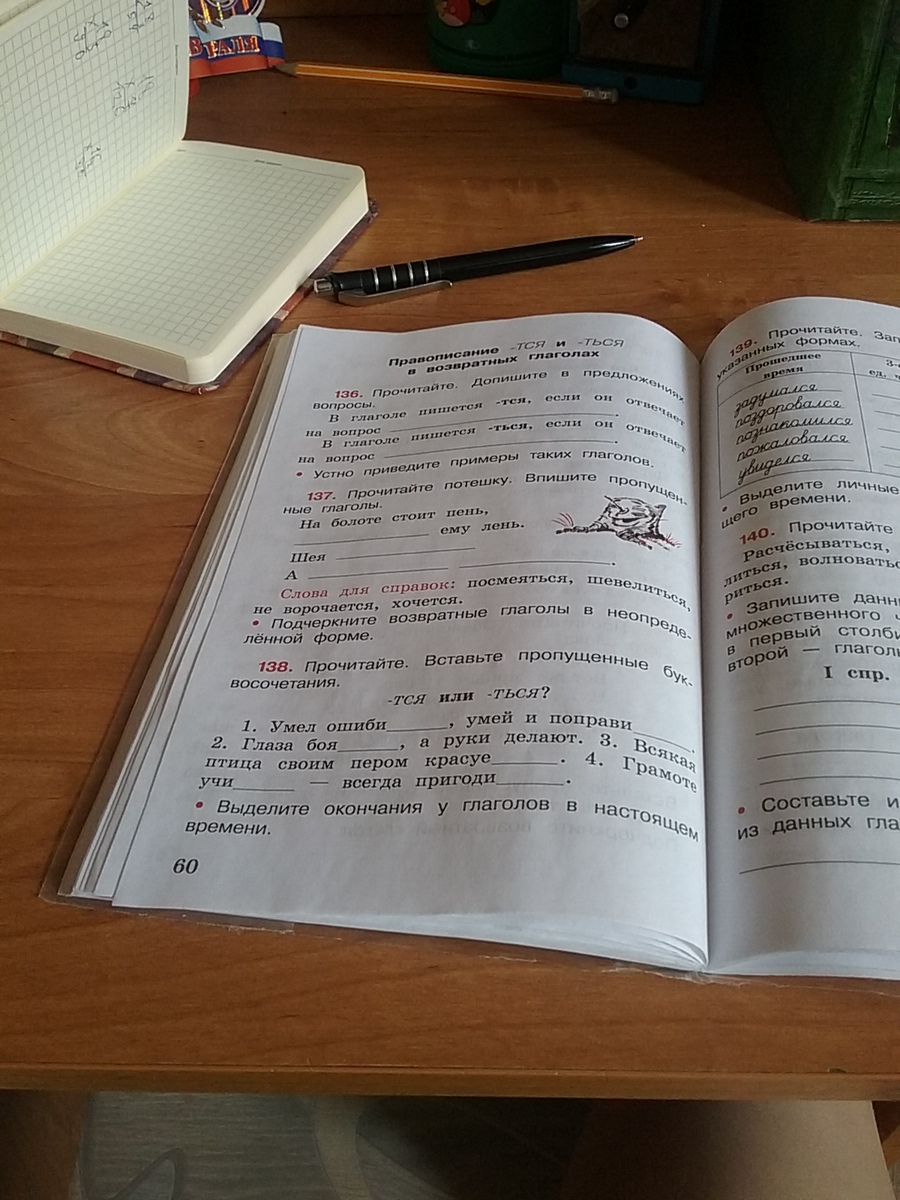 ВРАЛЯ
Правописание -ТСЯ и -ТЬСЯ
в возвратных глаголах
136. Прочитайте. Допишите в предложениях
вопросы.
В глаголе пишется -тся, если он отвечает
на вопрос ____________.
В глаголе пишется -ться, если он отвечает
на вопрос ____________.
• Устно приведите примеры таких глаголов.
137. Прочитайте потешку. Впишите пропущен-
ные глаголы.
На болоте стоит пень,
____________ ему лень.
Шея ____________
А ____________ ____________.
Слова для справок: посмеяться, шевелиться,
не ворочается, хочется.
• Подчеркните возвратные глаголы в неопреде-
лённой форме.
138. Прочитайте. Вставьте пропущенные бук-
восочетания.
-ТСЯ или -ТЬСЯ?
1. Умел ошиби_____, умей и поправи_____.
2. Глаза боя_____, а руки делают. 3. Всякая
птица своим пером красуе_____. 4. Грамоте
учи_____ — всегда пригоди_____.
• Выделите окончания у глаголов в настоящем
времени.
60
139. Прочитайте.
указанных формах.
Прошедшее
время
3-
ед. ч
задумался
поздоровался
познакомился
пожаловался
увиделся
• Выделите личные
щего времени.
140. Прочитайте
Расчёсываться,
литься,
риться.
• Запишите
множественного
в первый
второй —
I спр.
• Составьте
из данных